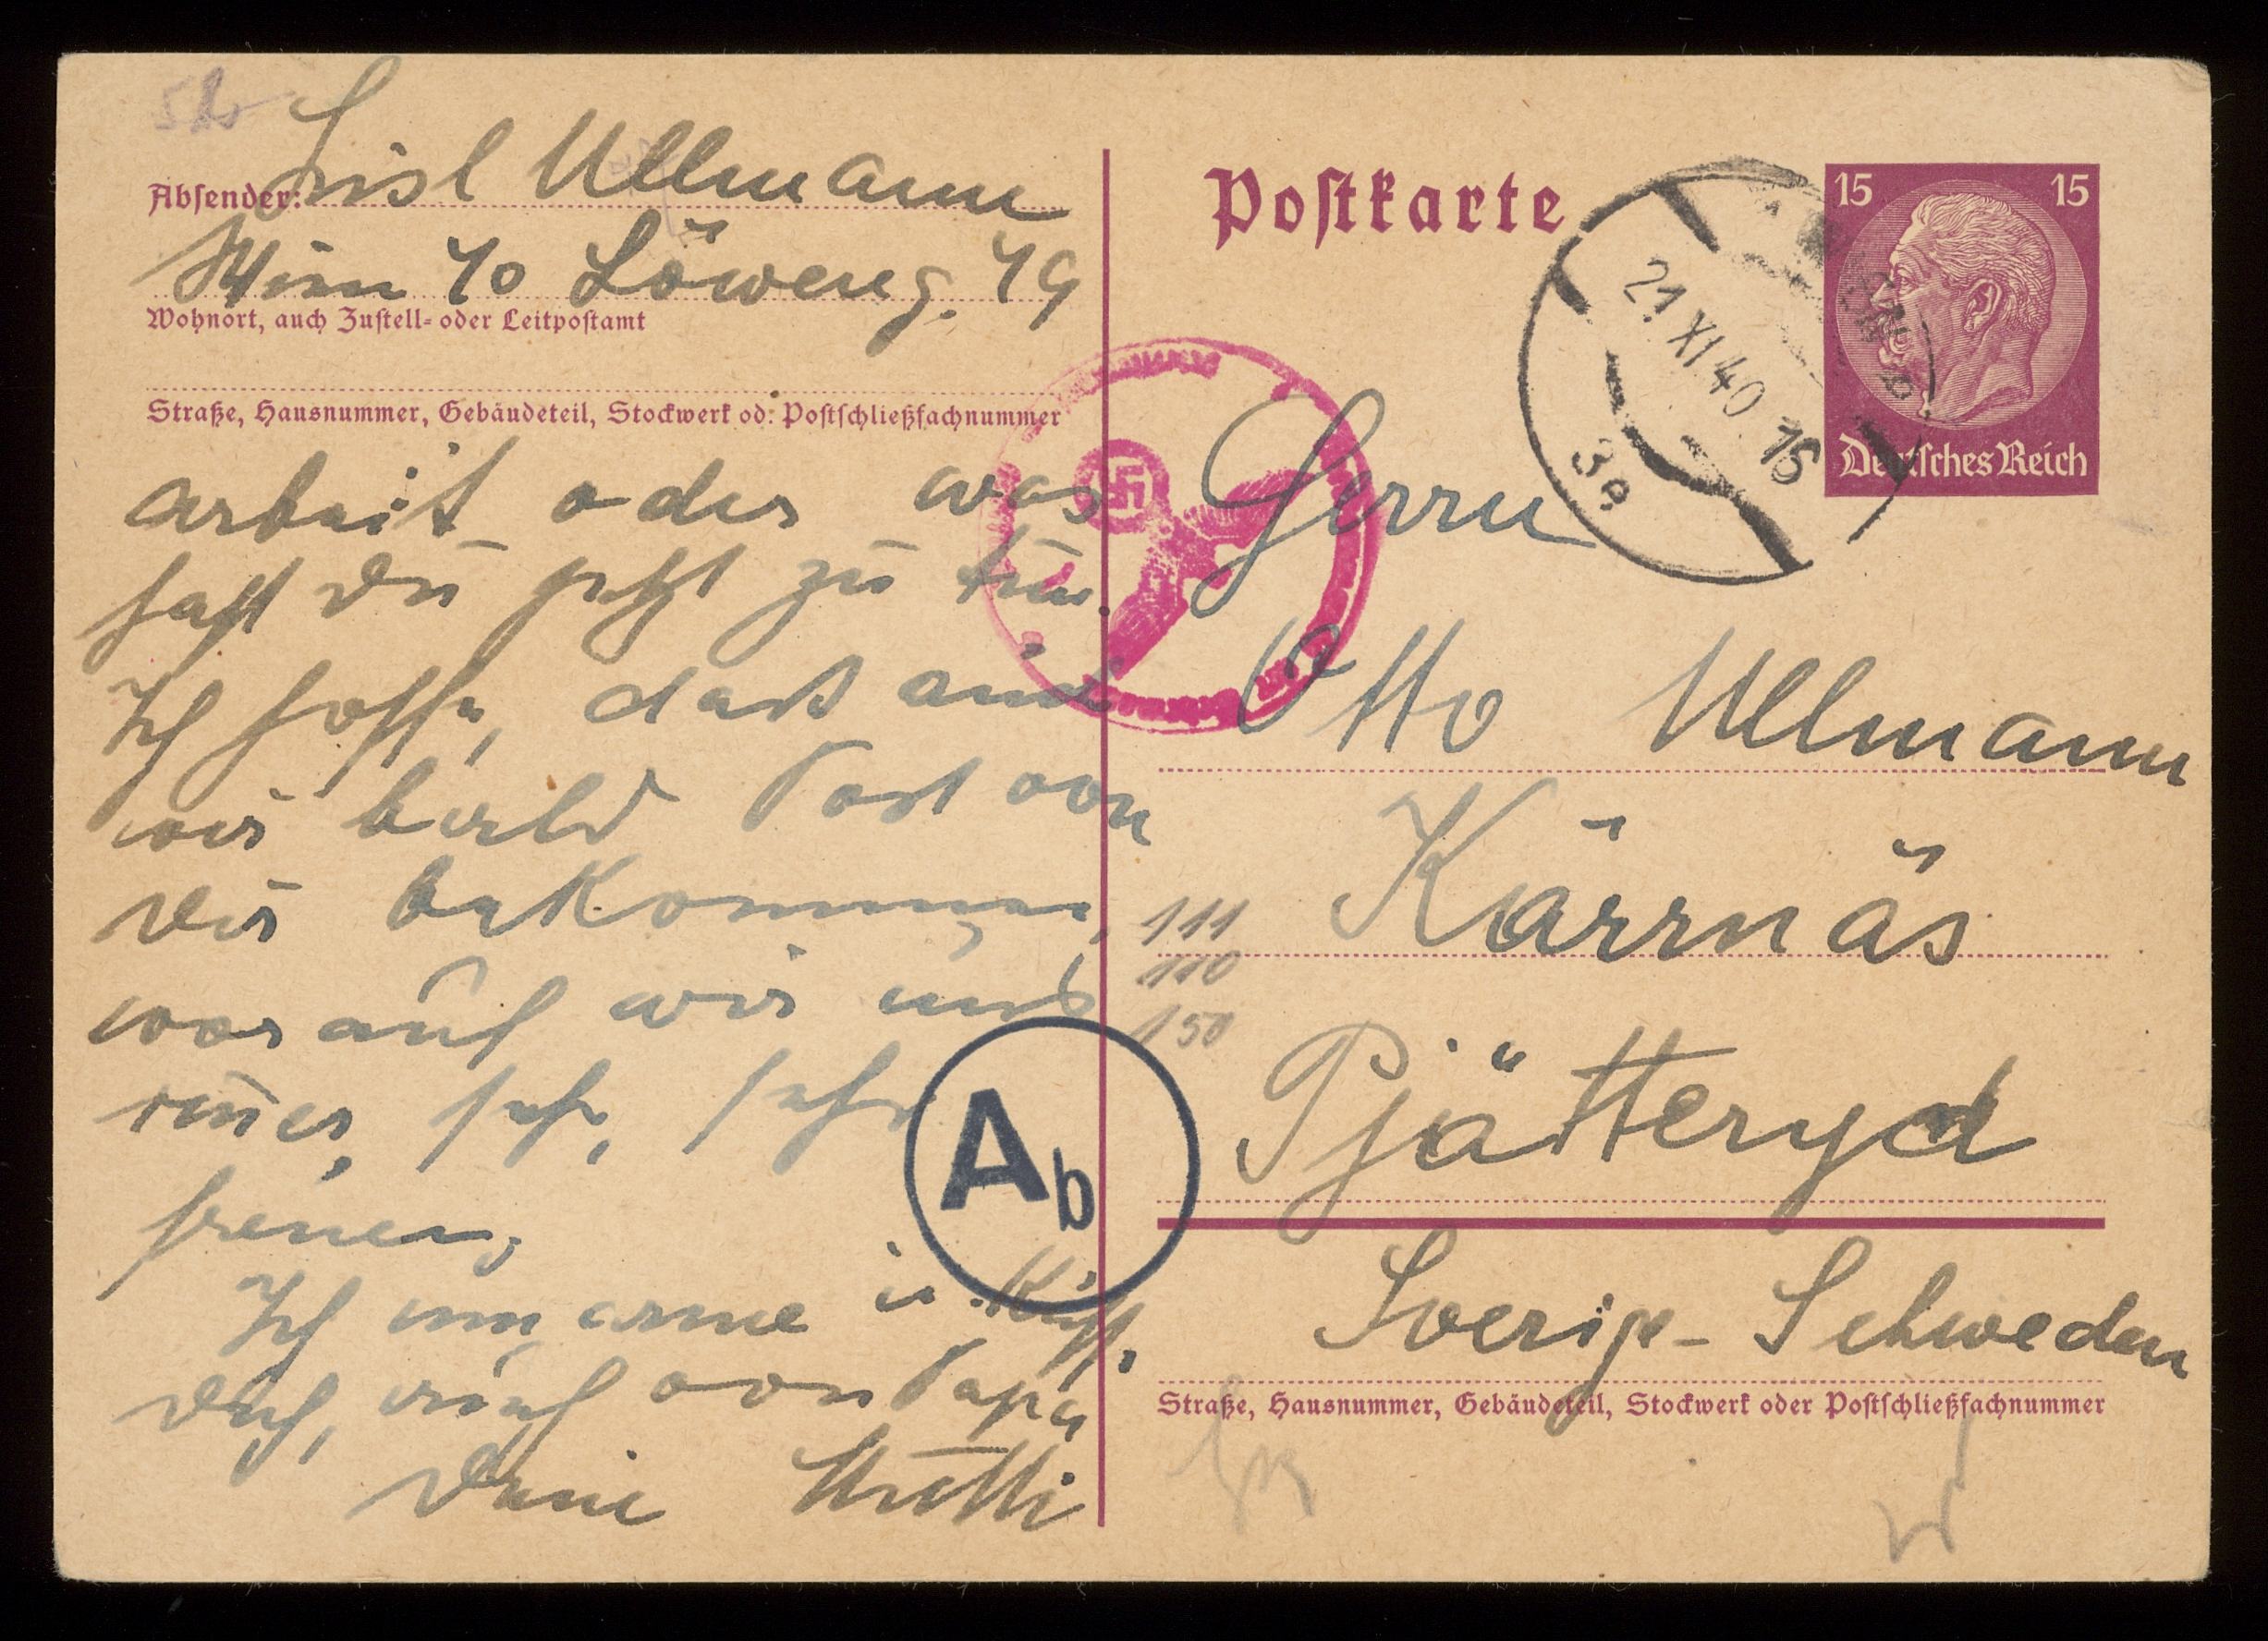 Lisl Ullmann
Absender:
Wien 10 Löweng. 19
Wohnort, auch Zustell- oder Leitpostamt
Straße, Hausnummer, Gebäudeteil, Stockwerk od. Postschließfachnummer
arbeit oder was
hast Du jetzt zu tun.
Ich hoffe, daß auch
wir bald Post von
Dir bekommen,
worauf wir uns
sehr, sehr
freuen.
Ich umarme u. küsse
Dich, auch von Papa
Deine Mutti
Postkarte
15 15
Deutsches Reich
21 XI 40 15
Herrn
Otto Ullmann
Kärrnäs
111
110
150
Pjätteryd
Sverige - Schweden
Straße, Hausnummer, Gebäudeteil, Stockwerk oder Postschließfachnummer
Ab